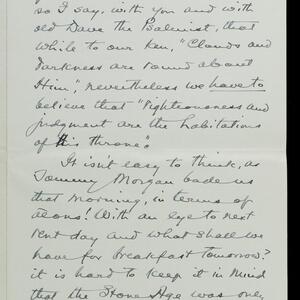 so I say, with you and with
old Dave the Psalmist, that
while to our ken, "Clouds and
darkness are round about
Him", nevertheless we have to
believe that "righteousness and
judgment are the habitations
of His throne".
It isn't easy to think, as
Tommy Morgan bade us
that morning, in terms of
aeons! With an eye to next
rent day and what shall we
have for breakfast tomorrow?
it is hard to keep it in mind
that the Stone Age was only